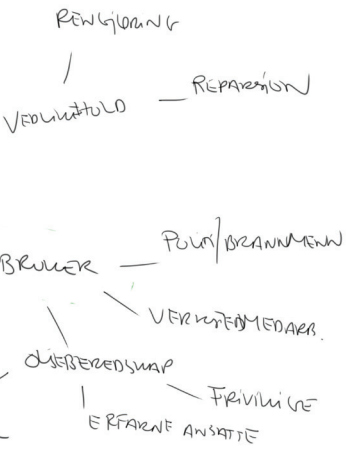 RENGJØRING
VEDLIKEHOLD
REPARASJON
BRUKER
POLITI/BRANNMENN
VERKSTEDMEDARB.
OLJEBEREDSKAP
FRIVILLIGE
ERFARNE ANSATTE